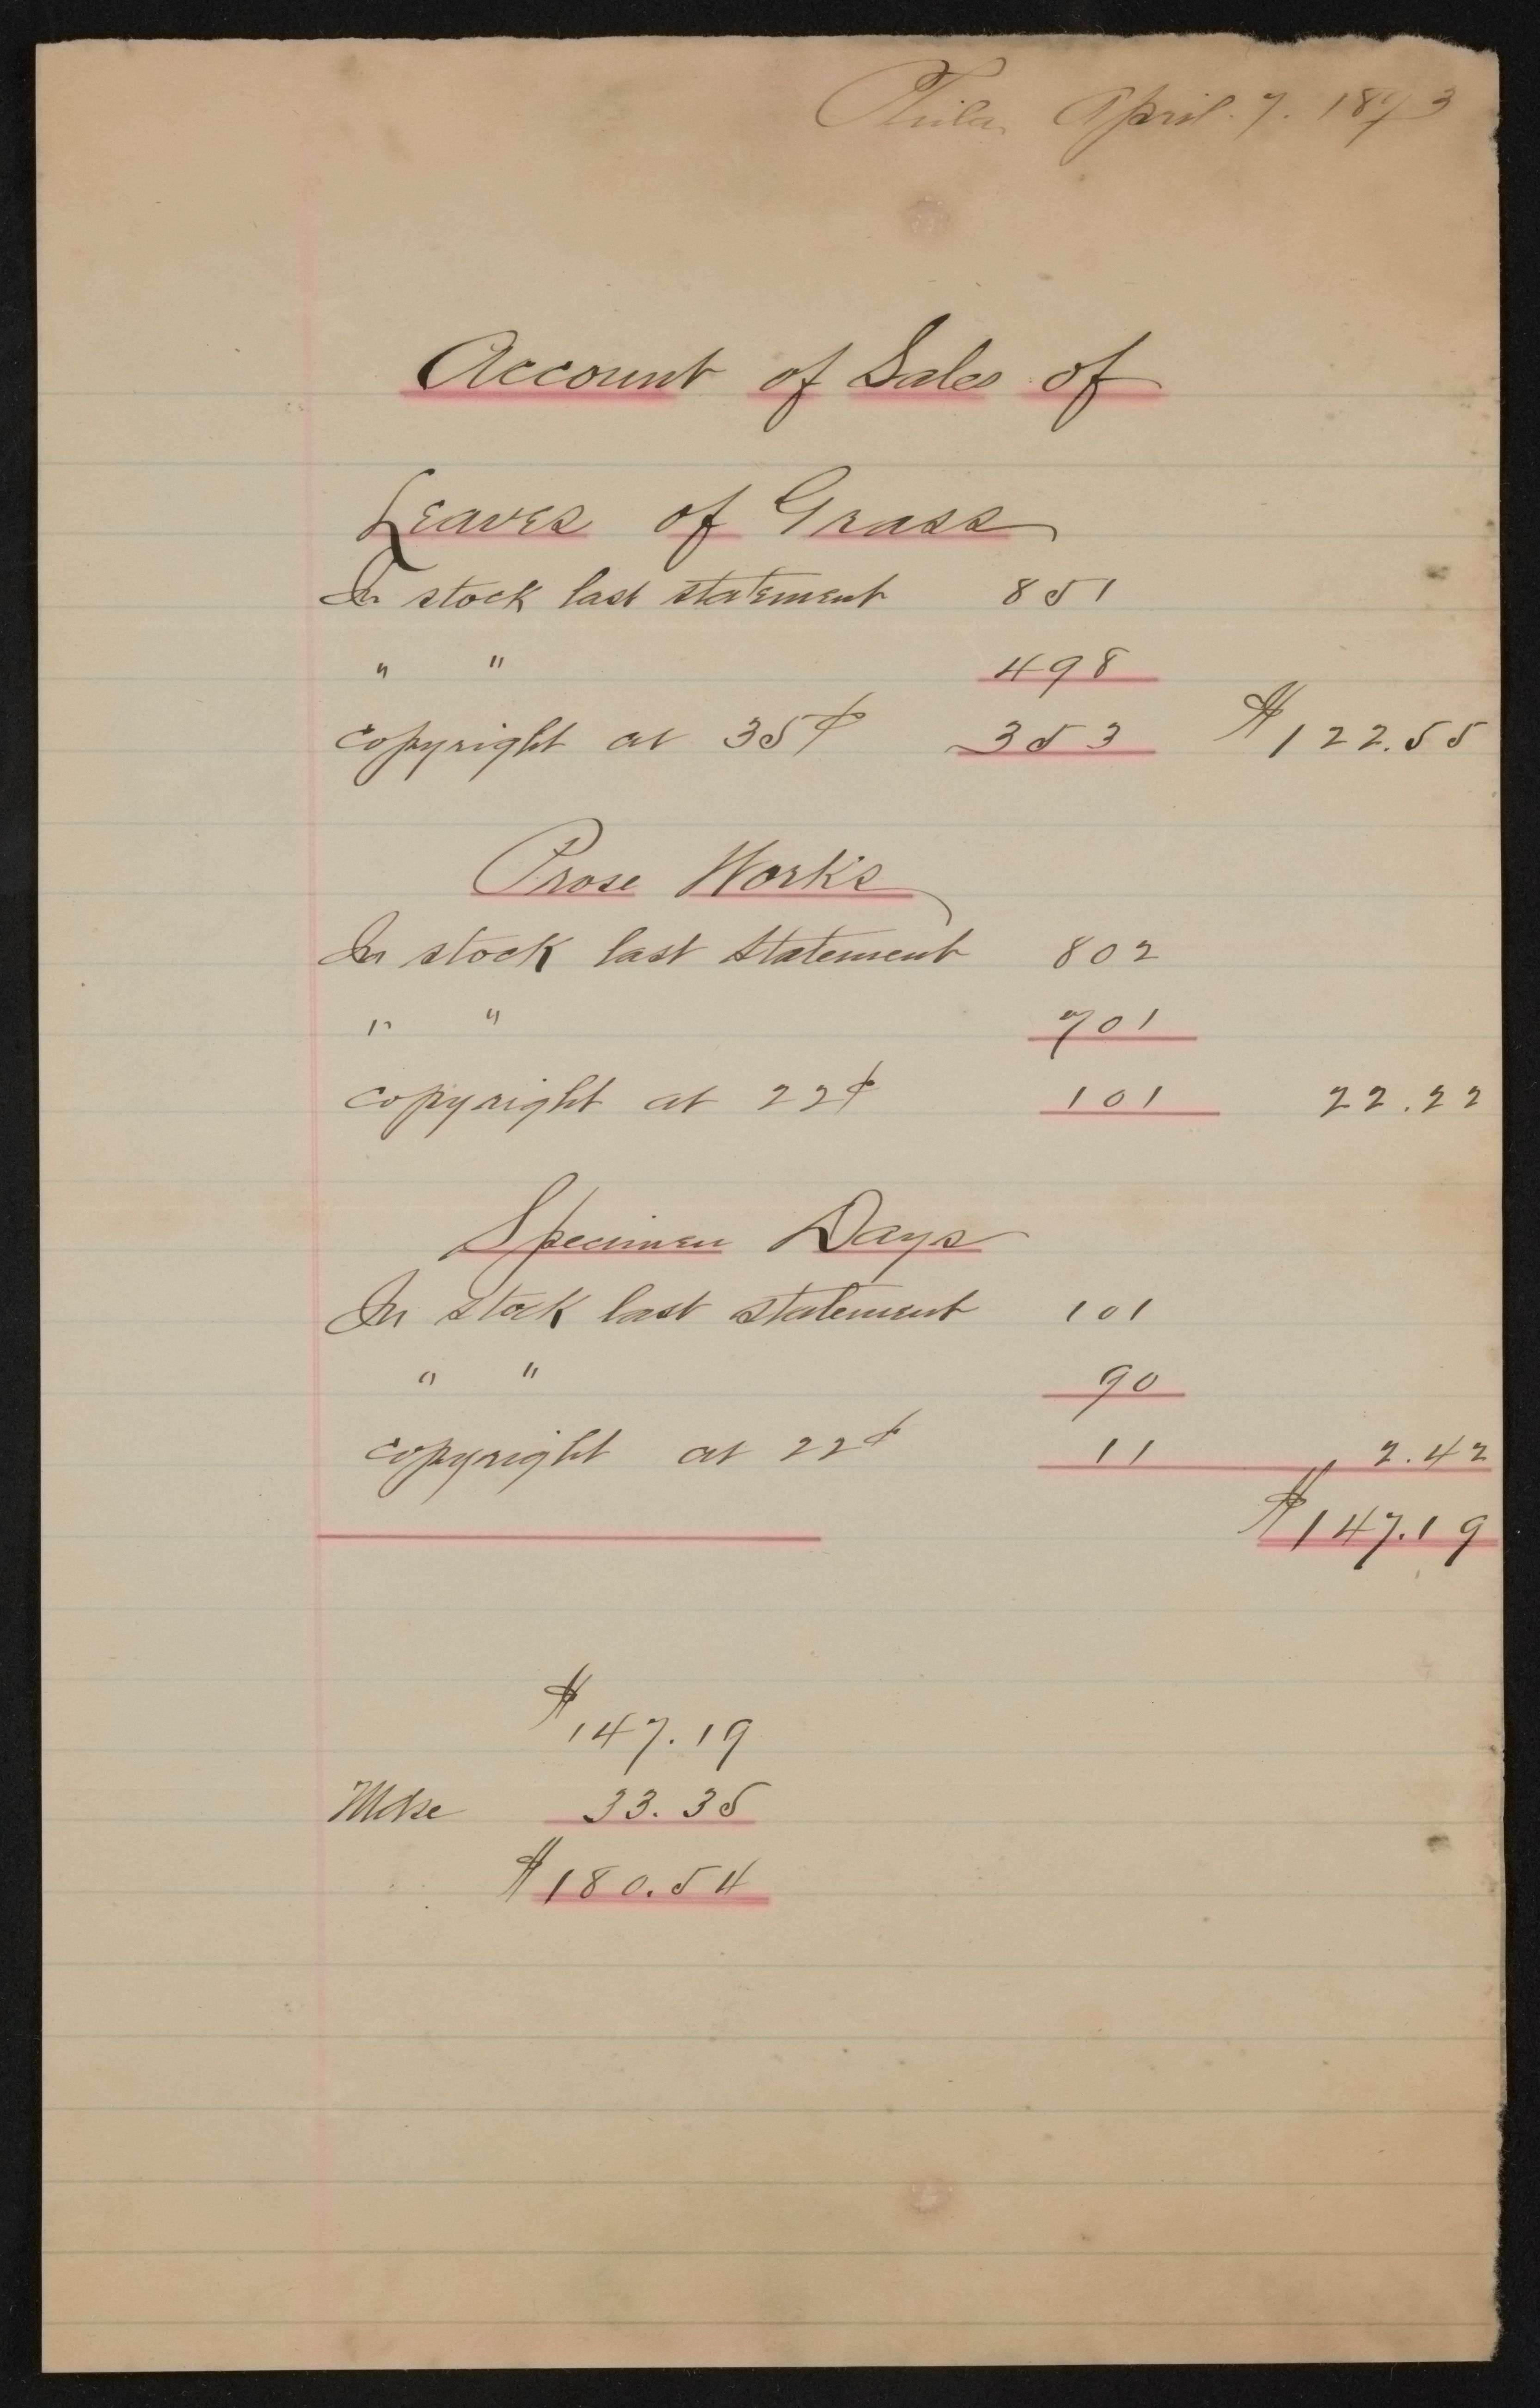 Phila. April. 7. 1893
Account of Sales of
Leaves of Grass
In stock last statement 851
" " 498
copyright at 35¢ 353 $122.55
Prose Works
In stock last statement 802
" " 701
copyright at 22¢ 101 22.22
Specimen Days
In stock last statement 101
" " 90
copyright at 22¢ 11 2.42
$147.19
$147.19
Mdse 33.35
$180.54